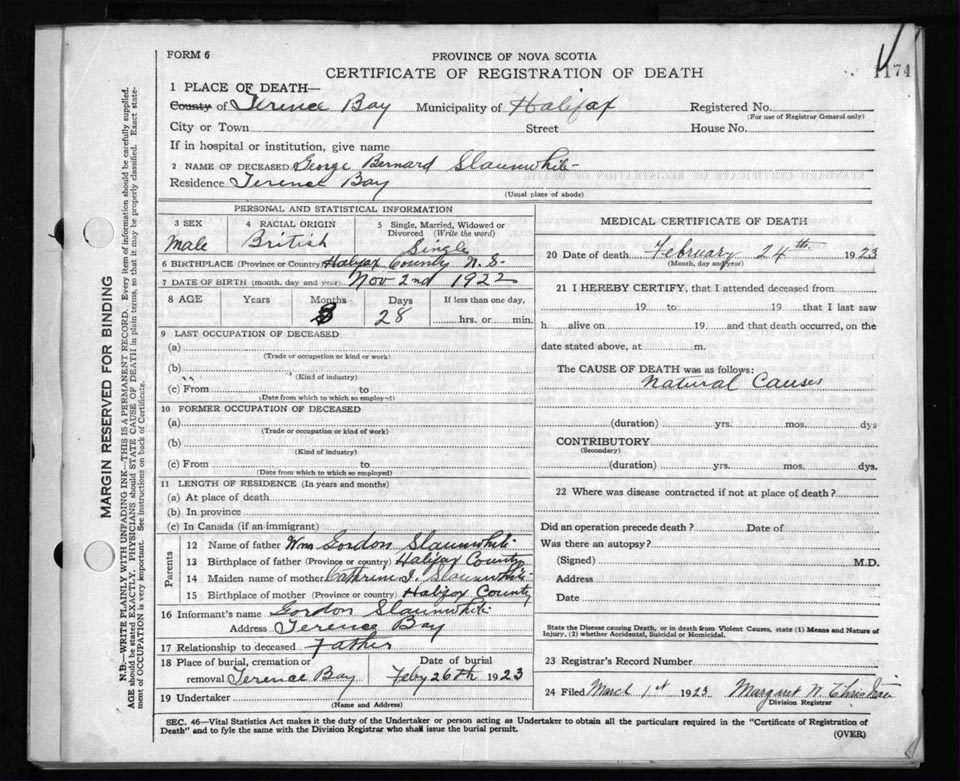 FORM 6
PROVINCE OF NOVA SCOTIA
CERTIFICATE OF REGISTRATION OF DEATH
1174
1 PLACE OF DEATH—
County of Terence Bay Municipality of Halifax Registered No.
(For use of Registrar General only)
City or Town Street House No.
If in hospital or institution, give name
2 NAME OF DECEASED George Bernard Slaunwhite
Residence Terence Bay
(Usual place of abode)
PERSONAL AND STATISTICAL INFORMATION
3 SEX 4 RACIAL ORIGIN 5 Single, Married, Widowed or Divorced (Write the word)
Male British Single
6 BIRTHPLACE (Province or Country) Halifax County N.S.
7 DATE OF BIRTH (month, day and year) Nov 2nd 1922
8 AGE Years Months Days If less than one day,
3 28 hrs. or min.
9 LAST OCCUPATION OF DECEASED
(a)
(Trade or occupation or kind or work)
(b)
(Kind of industry)
(c) From to
(Date from which to which so employed)
10 FORMER OCCUPATION OF DECEASED
(a)
(Trade or occupation or kind of work)
(b)
(Kind of industry)
(c) From to
(Date from which to which so employed)
11 LENGTH OF RESIDENCE (In years and months)
(a) At place of death
(b) In province
(c) In Canada (if an immigrant)
Parents
12 Name of father Wm Gordon Slaunwhite
13 Birthplace of father (Province or country) Halifax County
14 Maiden name of mother Cathrine I. Slaunwhite
15 Birthplace of mother (Province or country) Halifax County
16 Informant's name Gordon Slaunwhite
Address Terence Bay
17 Relationship to deceased Father
18 Place of burial, cremation or Date of burial
removal Terence Bay Feby 26th 1923
19 Undertaker
(Name and Address)
MEDICAL CERTIFICATE OF DEATH
20 Date of death February 24th 1923
(Month, day and year)
21 I HEREBY CERTIFY, that I attended deceased from
19 to 19 that I last saw
h alive on 19 and that death occurred, on the
date stated above, at m.
The CAUSE OF DEATH was as follows:
Natural Causes
(duration) yrs. mos. dys
CONTRIBUTORY
(Secondary)
(duration) yrs. mos. dys.
22 Where was disease contracted if not at place of death?
Did an operation precede death? Date of
Was there an autopsy?
(Signed) M.D.
Address
Date
State the Disease causing Death, or in death from Violent Causes, state (1) Means and Nature of
Injury, (2) whether Accidental, Suicidal or Homicidal.
23 Registrar's Record Number
24 Filed March 1st 1923 Margaret N. Christian
Division Registrar
SEC. 46—Vital Statistics Act makes it the duty of the Undertaker or person acting as Undertaker to obtain all the particulars required in the "Certificate of Registration of
Death" and to fyle the same with the Division Registrar who shall issue the burial permit.
(OVER)
MARGIN RESERVED FOR BINDING
N.B.—WRITE PLAINLY WITH UNFADING INK—THIS IS A PERMANENT RECORD. Every item of information should be carefully supplied.
AGE should be stated EXACTLY. PHYSICIANS should STATE CAUSE OF DEATH in plain terms, so that it may be properly classified. Exact state-
ment of OCCUPATION is very important. See instructions on back of Certificate.